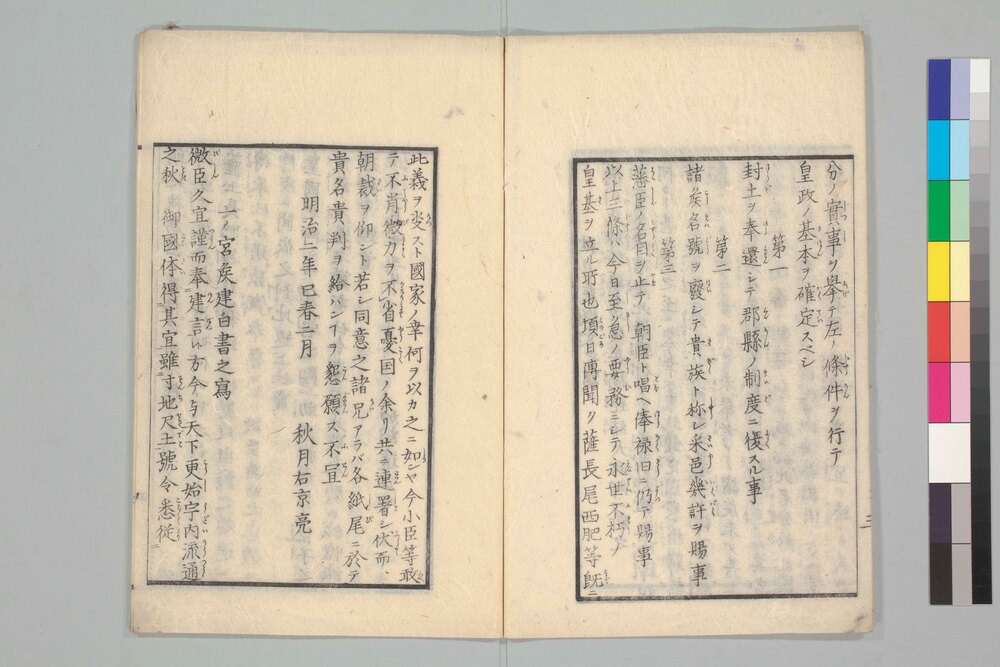 分ノ實事ヲ擧テ左ノ條件ヲ行テ
皇政ノ基本ヲ確定スベシ
第一
封土ヲ奉還シテ郡縣ノ制度ニ復スル事
第二
諸矦名號ヲ廢シテ貴族ト称シ采邑幾許ヲ賜事
第三
藩臣ノ名目ヲ止テ朝臣ト唱ヘ俸禄旧ニ仍テ賜事
以上三條ハ今日至急ノ要務ニシテ永世不朽ノ
皇基ヲ立ル所也頃日傳聞ク薩長尾西肥等既ニ
三
此義ヲ発スト國家ノ幸何ヲ以カ之ニ如ンヤ今小臣等敢
テ不肖微力ヲ不省憂国ノ余リ共ニ連署シ伏而
朝裁ヲ仰ント若シ同意之諸兄アラバ各紙尾ニ於テ
貴名貴判ヲ給ハンヿヲ懇願ス不宣
明治二年巳春二月　秋月右京亮
一ノ宮矦建白書之寫
微臣久宜謹而奉建言候方今与天下更始宇内流通
之秋御國体得其宜雖寸地尺土號令悉從